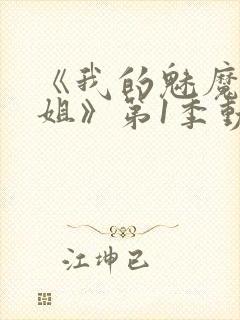 《我的魅魔
姐》第1季動
江坤已